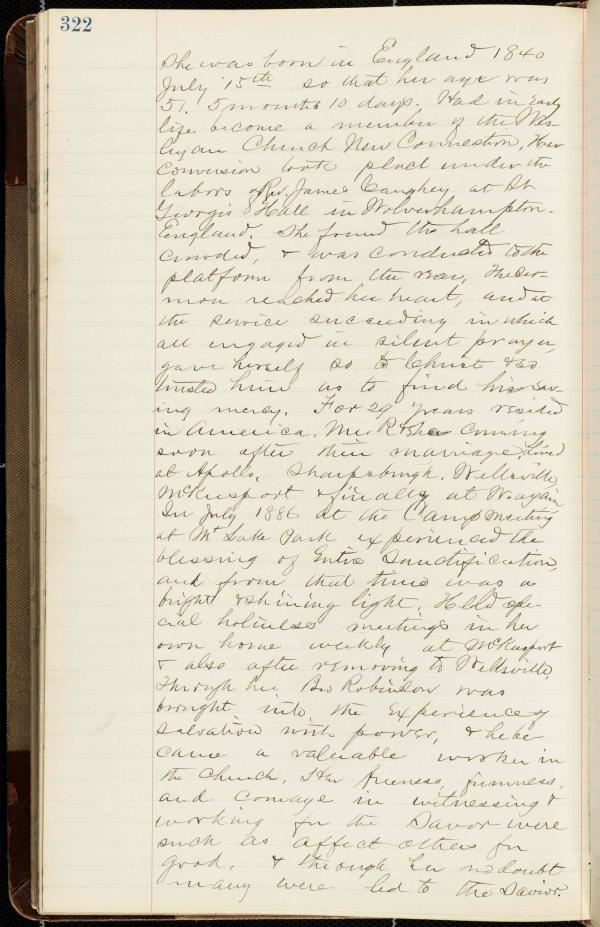 322
She was born in England 1840
July 15th so that her age was
51. 5 months 10 days. Had in early
life become a member of the Wes-
leyan Church New Connection, Her
Conversion took place under the
labors of Rev. James Caughey at St
Georges Hall in Wolverhampton-
England. She found the hall
crowded, & was conducted to the
platform from the rear, The ser-
mon reached her heart, and at
the service succeeding in which
all engaged in silent prayer,
gave herself so to Christ & so
trusted him as to find his sav-
ing mercy. For 29 years resided
in America, Mr R & she coming
soon after their marriage, Lived
at Apollo, Sharpsburgh, Wellsville,
McKeesport & finally at W. again
In July 1886 at the Camp Meeting
at Mt Lake Park experienced the
blessing of Entire Sanctification,
and from that time was a
bright & shining light, Held spe-
cial holiness meetings in her
own home weekly at McKeesport
& also after removing to Wellsville,
Through her Bro Robinson was
brought into the experience of
salvation with power, & he be-
came a valuable worker in
the Church, Her firmness,
and courage in witnessing &
working for the Savior were
such as affect others for
good, & through her no doubt
many were led to the Savior.